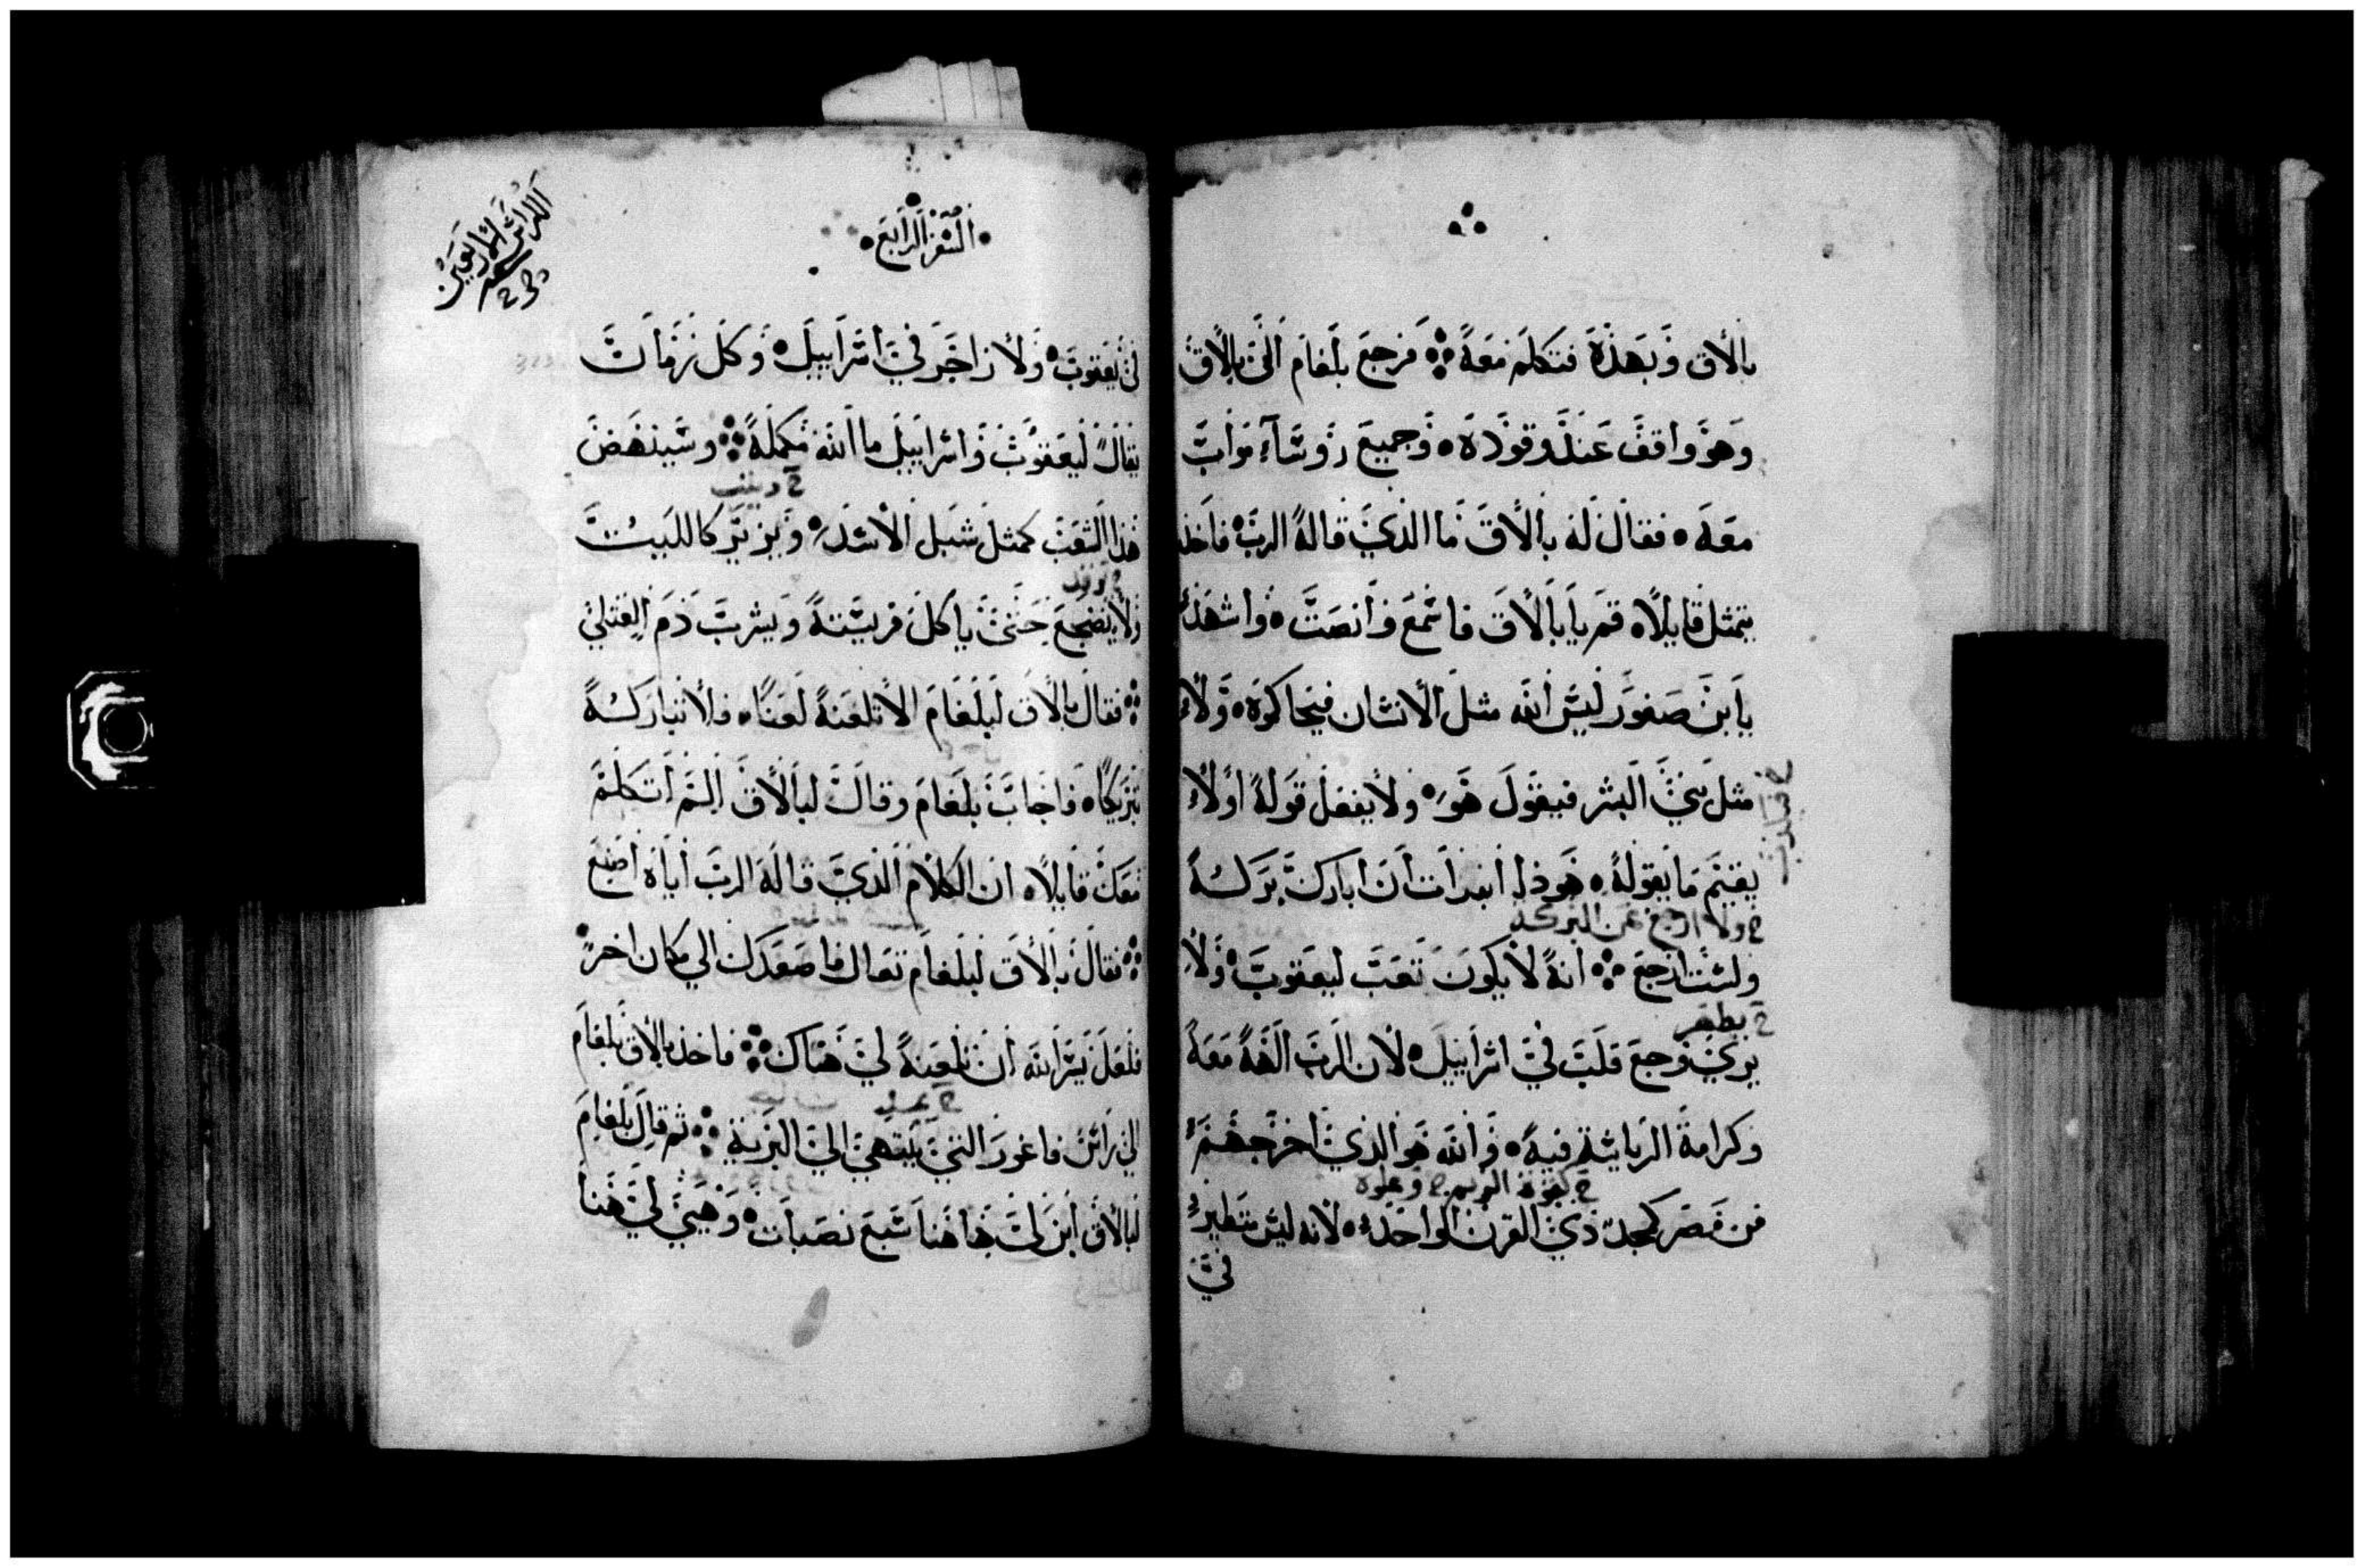 بالاق وبهذه فتكلم معه ۞ فرجع بلغام الى بالاق
وهو واقف عند وقوده • وجميع روساء مواب
معه • فقال له بالاق ما الذي قاله الرب • فاخذ
يتمثل قايلا • قم يا بالاق فاسمع وانصت • واشهد
يا ابن صفور ليس الله مثل الانسان فيحاكوه • ولا
مثل بني البشر فيقول هو • ولا يفعل قوله اولا
يقيم ما يقوله • هوذا ابدات ان ابارك بركه
خ ولا ارجع عن البركه
ولست ارجع ۞ انه لا يكون تعب ليعقوب • ولا
خ يظهر
يرى وجع قلب في اسراييل • لان الرب الهه معه
وكرامة الرياسة فيه • والله هو الذي اخرجهم
من مصر كمجد ذي القرن الواحد • لانه ليس تطير
في
السفر الرابع
الكراس الاربعين
في يعقوب • ولا زاجر في اسراييل • وكل زمان
يقال ليعقوب واسراييل ما الله مكمله ۞ وسينهض
هذا الشعب كمثل شبل الاسد • ويزير كاللبيث
ولا يضجع حتى ياكل فريسته ويشرب دم القتلى
۞ فقال بالاق لبلغام لا تلعنه لعنا • فلا تباركه
تبريكا • فاجاب بلغام وقال لبالاق الم اتكلم
معك قايلا • ان الكلام الذي قاله الرب اياه اصنع
۞ فقال بالاق لبلغام تعال فاصعدك الى مكان اخر •
فلعل يسر الله ان تلعنه لي هناك ۞ فاخذ بالاق بلغام
الى راس فاغور التي ينتهي الى البرية ۞ ثم قال بلغام
لبالاق ابن لي هاهنا سبع نصبات • وهيي لي هنا